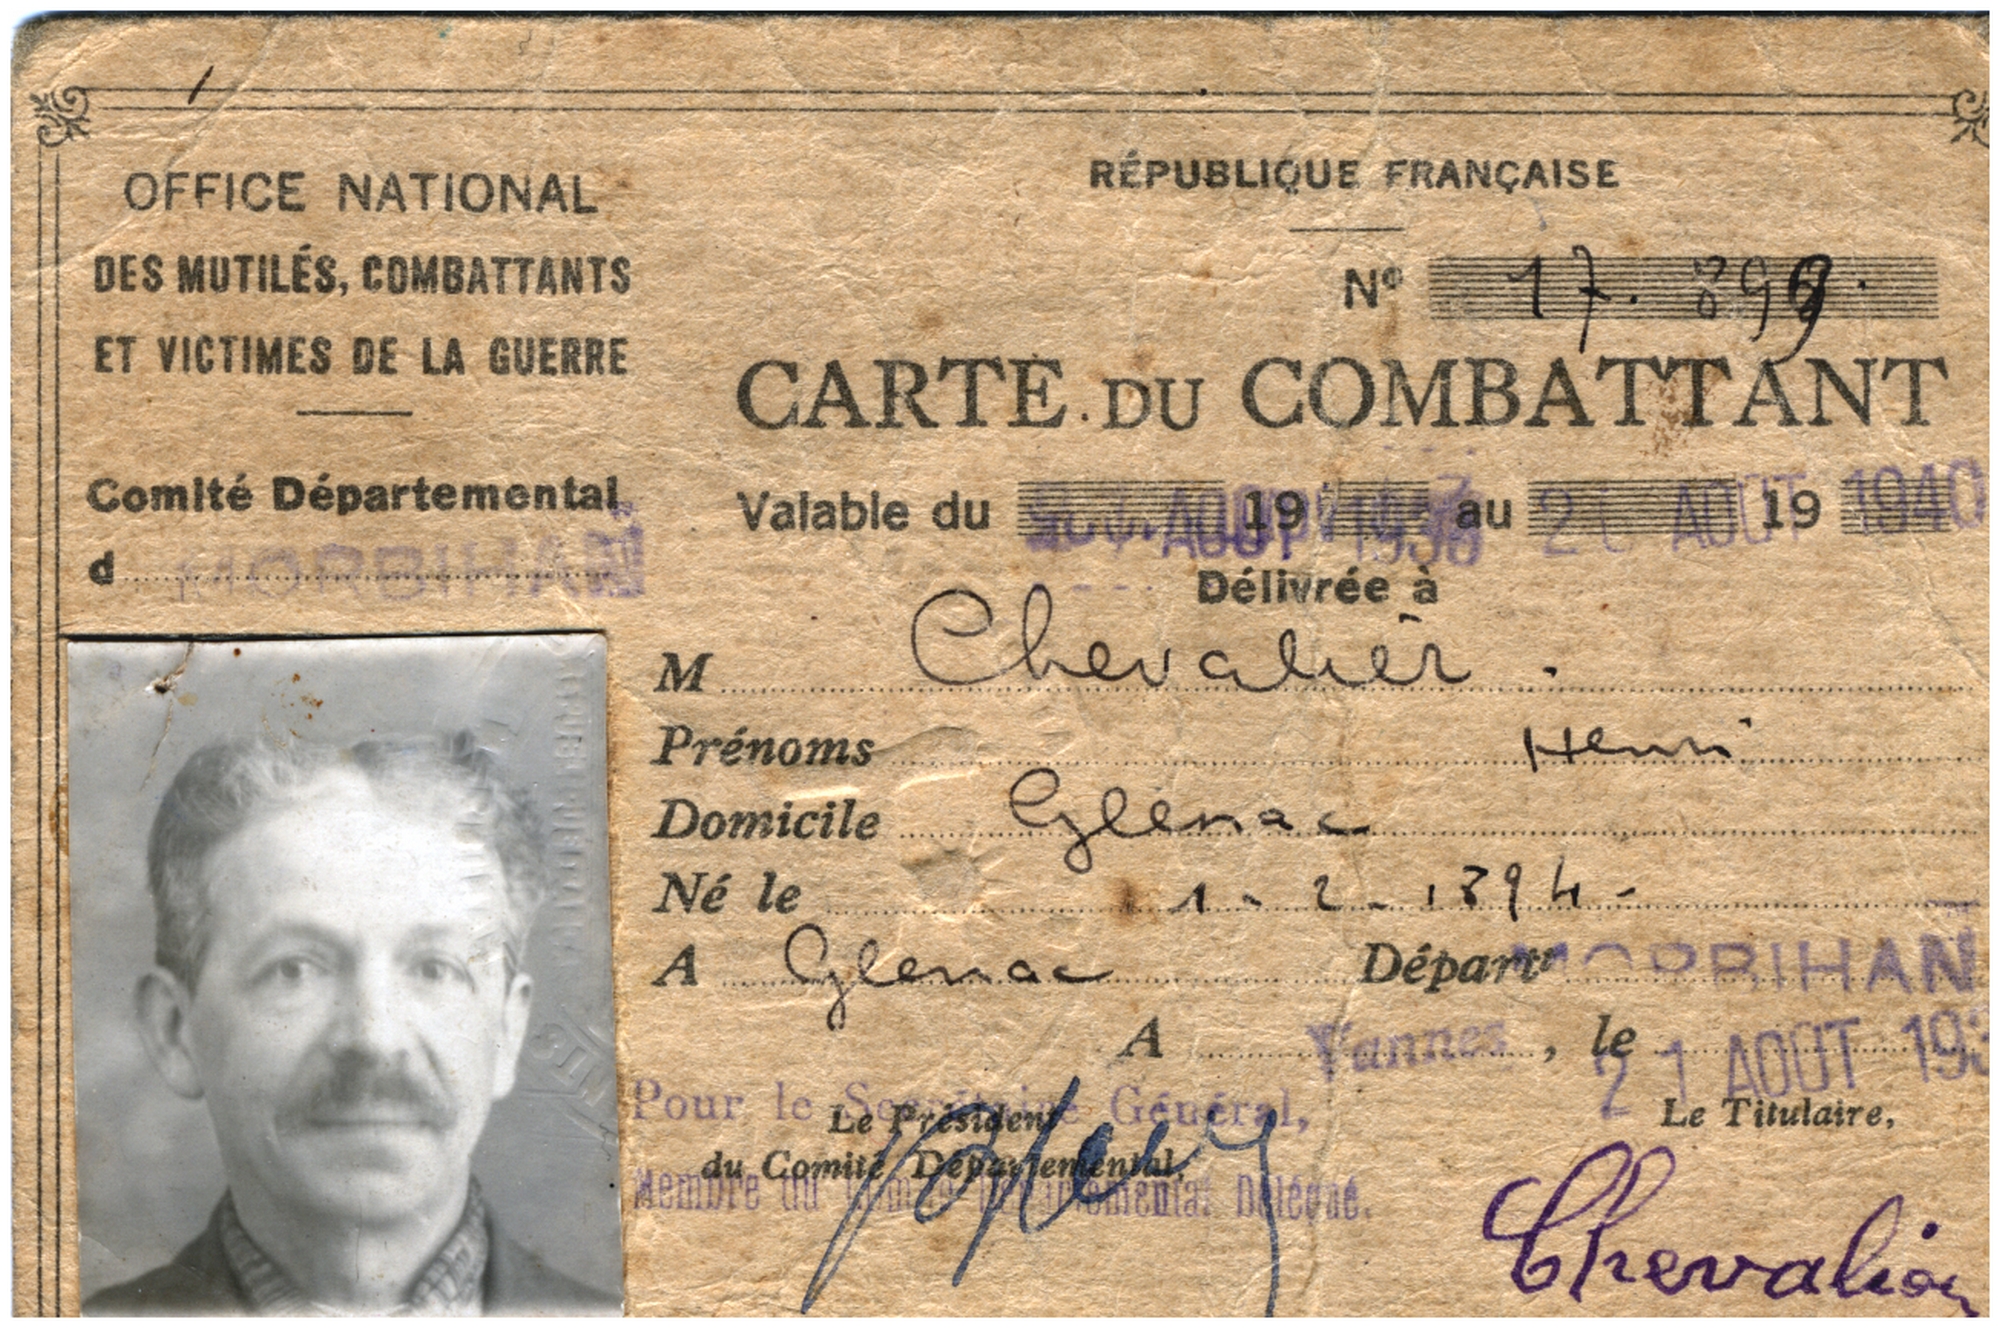 OFFICE NATIONAL
DES MUTILÉS, COMBATTANTS
ET VICTIMES DE LA GUERRE
Comité Départemental
d MORBIHAN
RÉPUBLIQUE FRANÇAISE
N° 17.899.
CARTE DU COMBATTANT
Valable du AOUT 19 au AOUT 19 1940
Délivrée à
M Chevalier.
Prénoms Henri
Domicile Glénac
Né le 1-2-1894-
A Glenac Départt MORBIHAN
A Vannes, le 21 AOUT 193
Pour le Secrétaire Général,
Le Président
du Comité Départemental,
Membre du Comité Départemental Délégué.
Le Titulaire,
Chevalier